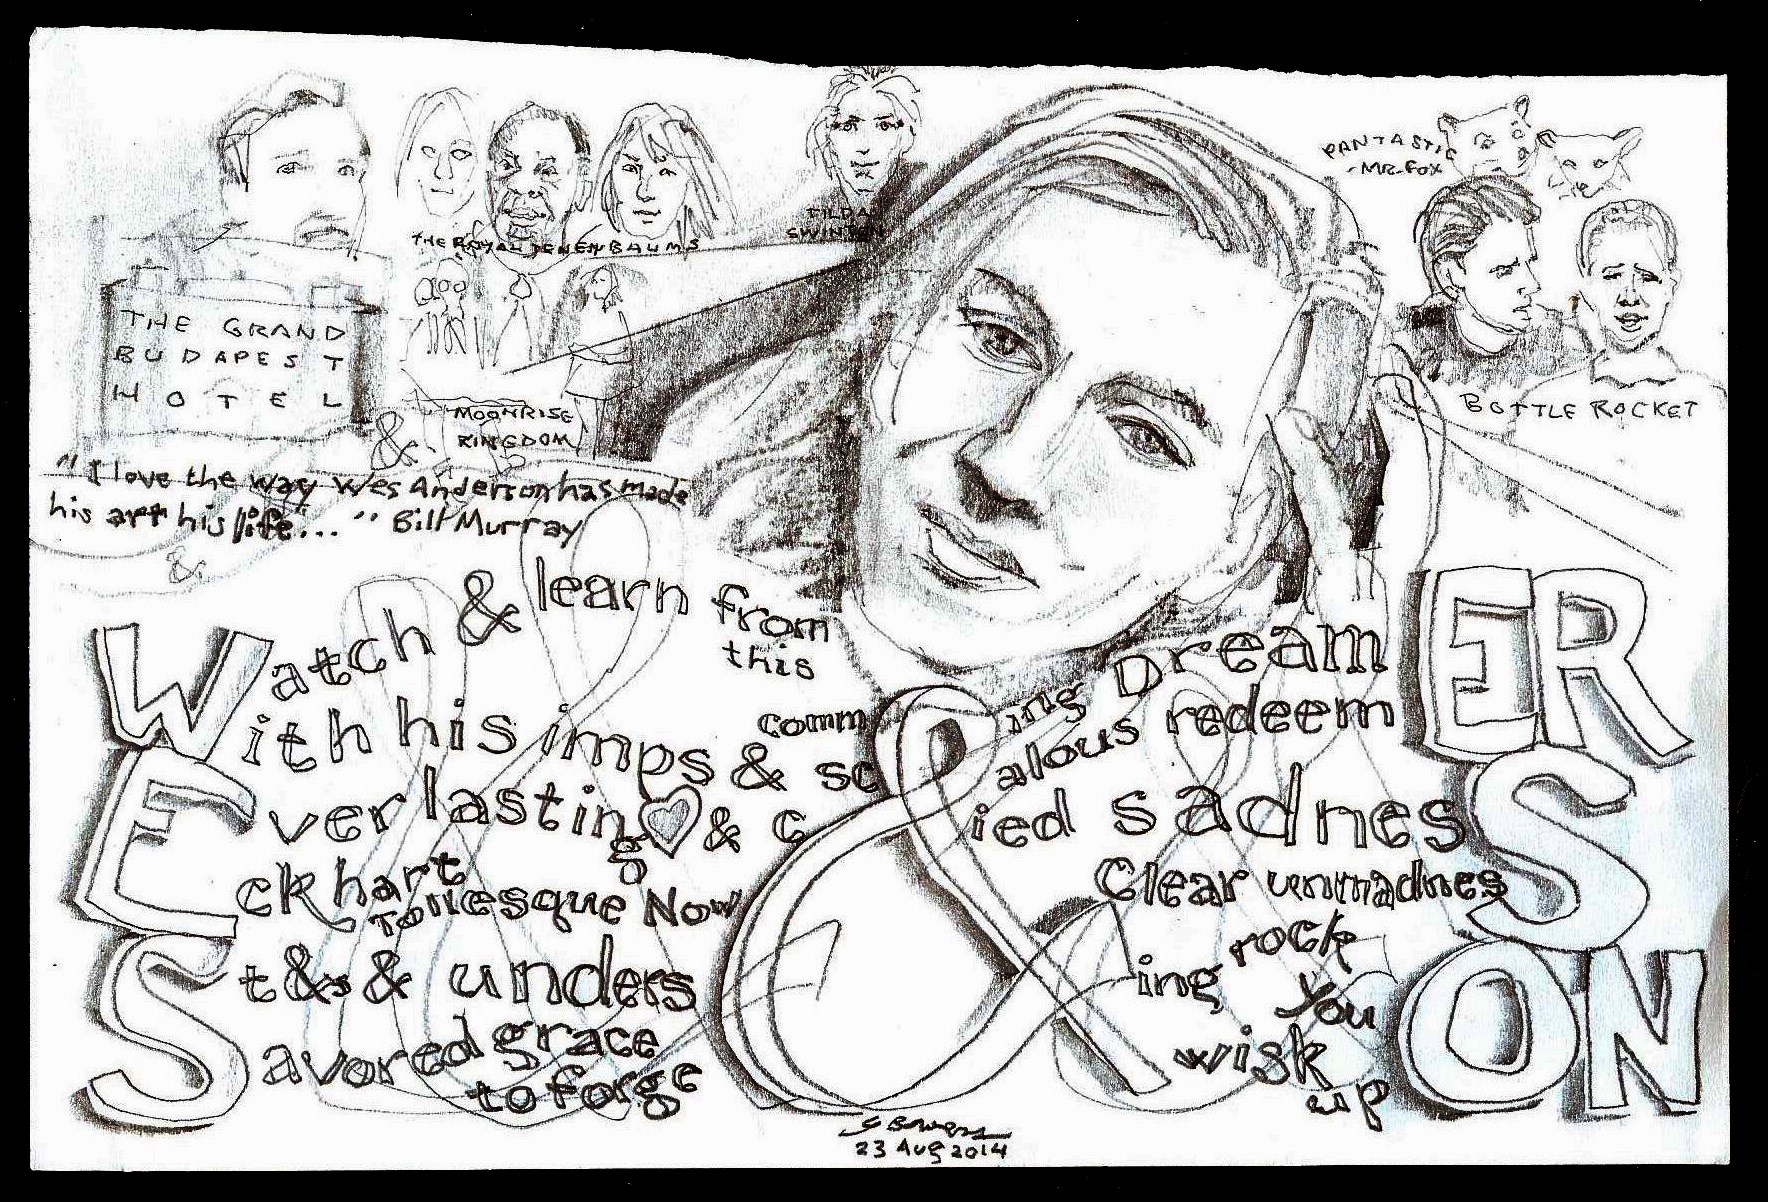 THE ROYAL TENENBAUMS
TILDA
SWINTON
FANTASTIC
MR. FOX
THE GRAND
BUDAPEST
HOTEL
&
MOONRISE
KINGDOM
BOTTLE ROCKET
"I love the way Wes Anderson has made
his art his life..." Bill Murray
&
Watch & learn from
this
comm&ing DreamER
With his imps & sc&alous redeemER
Everlasting & c&ied sadnesS
Eckhart
Tollesque Now
Clear unmadnesS
St&s & unders&ing rock
you
Savored grace
to forge
wisk
up
ON
23 Aug 2014